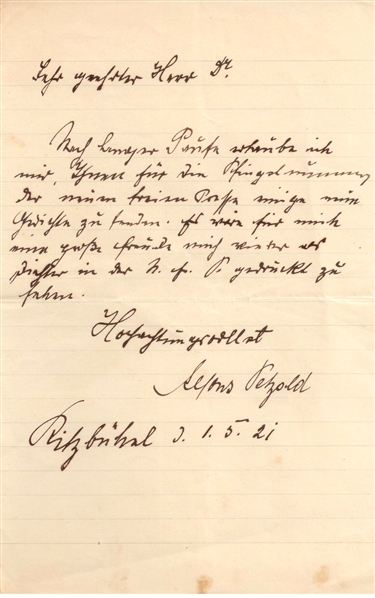 Sehr geehrter Herr Dr.
Nach langer Pause erlaube ich
mir, Ihnen für die Pfingstnummer
der neuen freien Presse einige neue
Gedichte zu senden. Es wäre für mich
eine große Freude mich wieder als
Dichter in der N. fr. P. gedruckt zu
sehen.
Hochachtungsvollst
Alfons Petzold
Kitzbühel d. 1. 5. 21